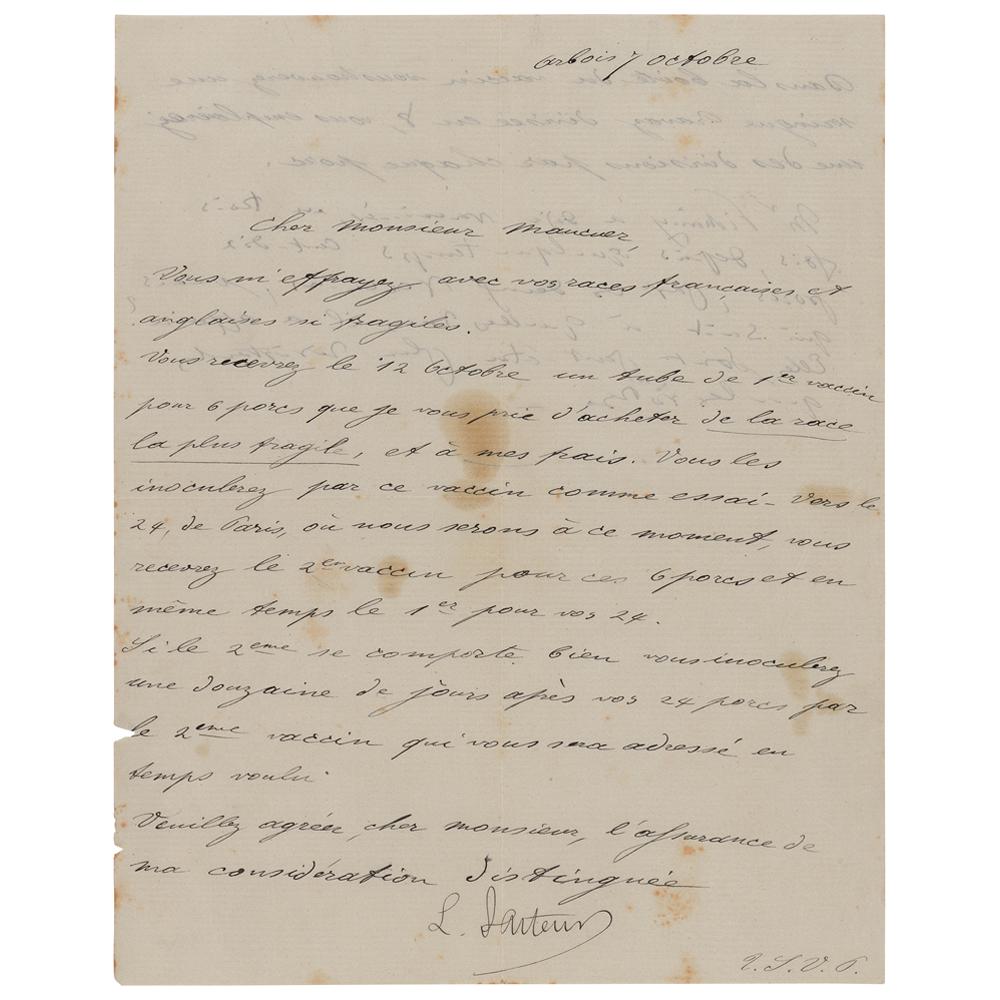 Arbois 7 octobre
Cher Monsieur Maucuer,
Vous m'effrayez avec vos races françaises et
anglaises si fragiles.
Vous recevrez le 12 Octobre un tube de 1er vaccin
pour 6 porcs que je vous prie d'acheter de la race
la plus fragile, et à mes frais. Vous les
inoculerez par ce vaccin comme essai - Vers le
24, de Paris, où nous serons à ce moment, vous
recevrez le 2em vaccin pour ces 6 porcs et en
même temps le 1er pour vos 24.
Si le 2eme se comporte bien vous inoculerez
une douzaine de jours après vos 24 porcs par
le 2eme vaccin qui vous sera adressé en
temps voulu.
Veuillez agréer, cher monsieur, l'assurance de
ma considération distinguée
L. Pasteur
T.S.V.P.